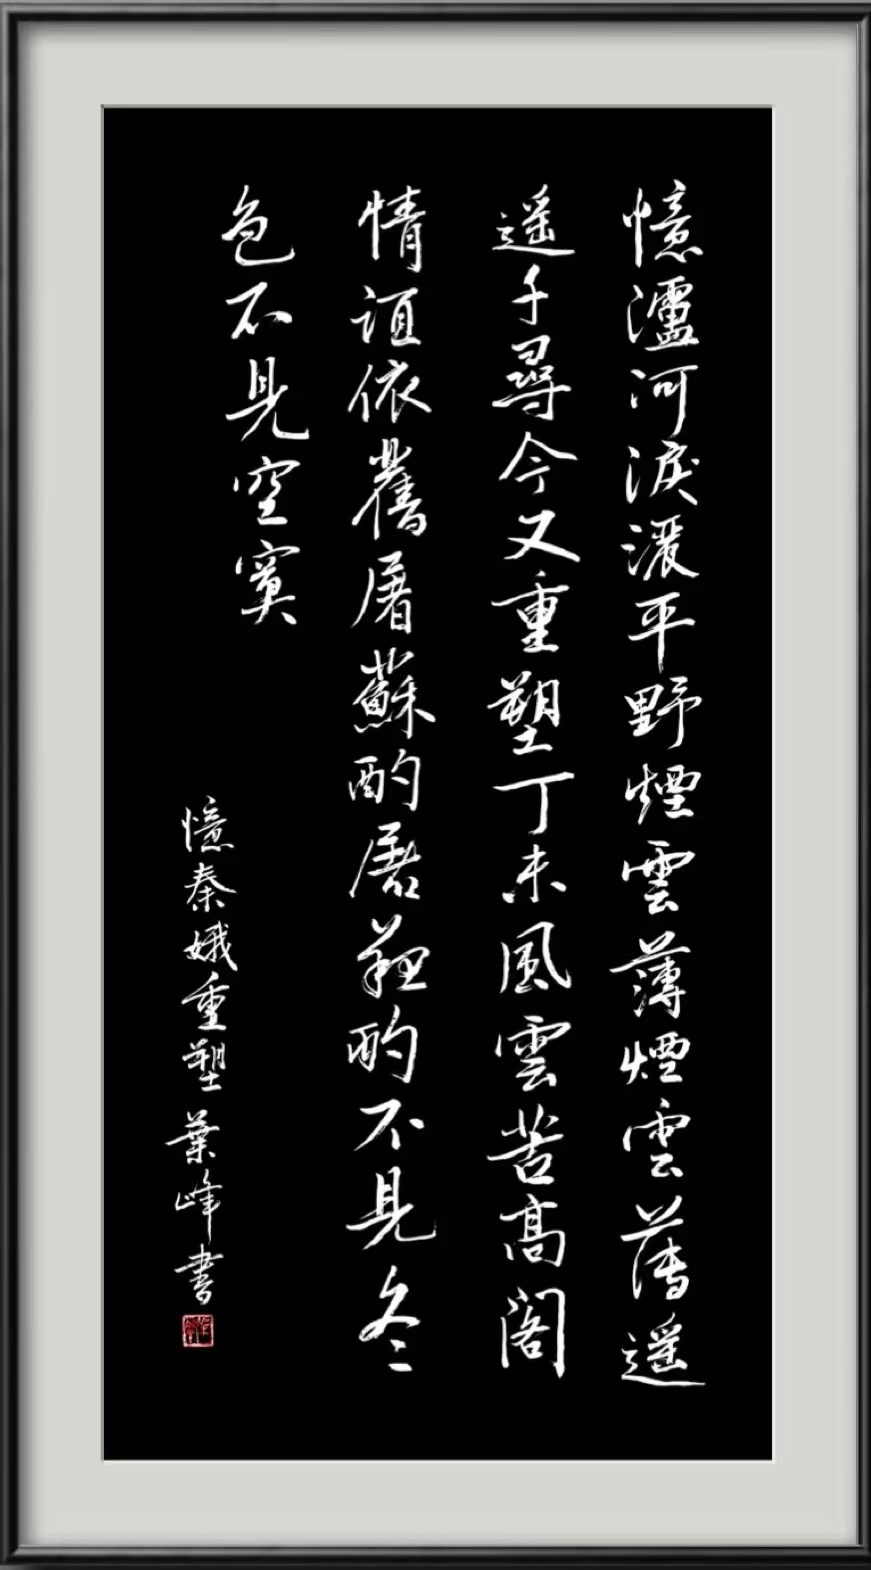 憶瀘河淚濺平野煙雲薄煙雲薄遥
遥千尋今又重塑丁未風雲苦高閣
情誼依舊屠蘇酌屠蘇酌不見冬
色不見空寞
憶秦娥重塑葉峰書